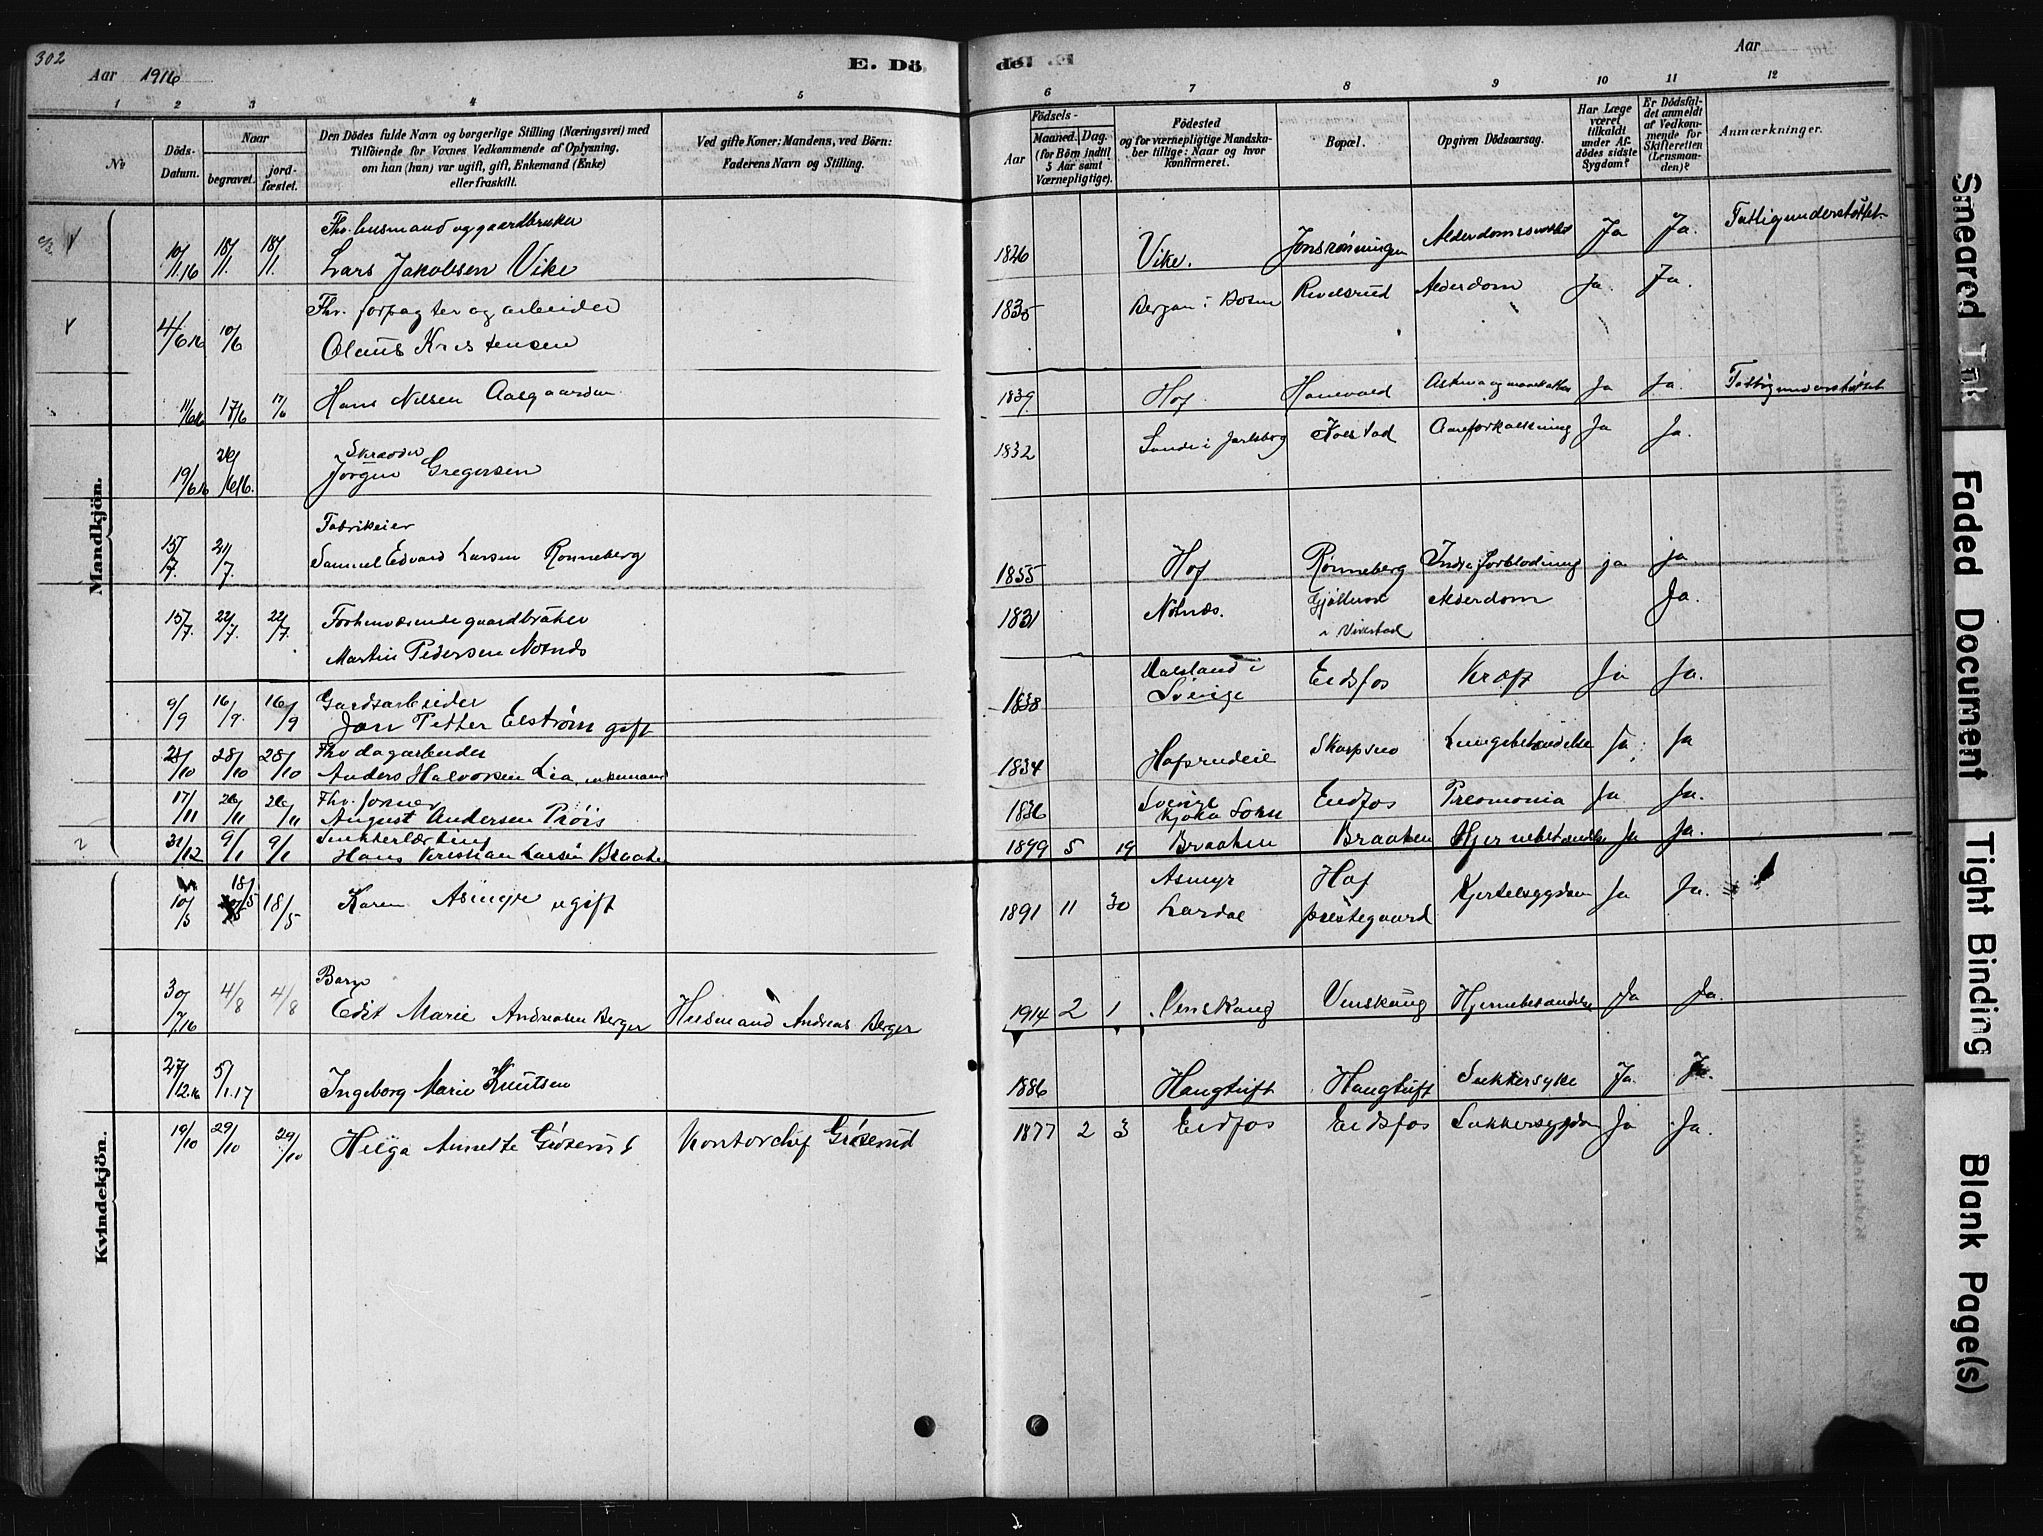 302
Aar 1916
E. Dö
de. E.
Aar
1 2 3 4 5 6 7 8 9 10 11 12
No
Döds-Datum.
Naar
begravet.
jord-fæstet.
Den Dödes fulde Navn og borgerlige Stilling (Næringsvei) med
Tilföiende for Voxnes Vedkommende af Oplysning,
om han (hun) var ugift, gift, Enkemand (Enke)
eller fraskilt.
Ved gifte Koner: Mandens, ved Börn:
Faderens Navn og Stilling.
Födsels-
Aar
Maaned. Dag.
(for Börn indtil
5 Aar samt
Værnepligtige).
Födested
og for værnepligtige Mandska-
ber tillige: Naar og hvor
konfirmeret.
Bopæl.
Opgiven Dödsaarsag.
Har Læge
været
tilkaldt
under Af-
dödes sidste
Sygdom?
Er Dödsfal-
det anmeldt
af Vedkom-
mende for
Skifteretten
(Lensman-
den)?
Anmærkninger.
Mandkjön.
Fhv. husmand og gaardbruker
10/1.16 18/1. 18/1. Lars Jakobsen Vike 1826 Vike. Jonsrønningen Ja Ja. Fattigunderstøttet
Fhv. forpagter og arbeider
4/6.16 10/6 Olaus Kristensen Bergan i Revelsrud Alderdom Ja. Ja.
11/6.16 17/6 17/6 Hans Nilsen Aasgaarden 1839 Hof. Hanevold Ja Ja. Fattigunderstøttet
Skrædder
19/6.16 Jørgen Gregersen 1832 Sande i Jarlsberg Kolstad Aareforkalkning Ja Ja.
Fabrikeier
15/7. 21/7. Samuel Edvard Larsen Rønneberg 1855 Hof Rønneberg Indre forblødning ja ja.
15/7. 22/7. 22/7. Forhenværende gaardbruker
Martin Pedersen Notnæs 1831 Notnæs. Alderdom Ja.
i Vivestad
9/9 16/9. 16/9 Gaardsarbeider
Jan Petter Elstrøm gift 1838 Dalsland i
Sverige Eidsfos Kræft Ja Ja.
28/10 28/10 Fhv dagarbeider
Anders Halvorsen Lia, enkemand 1834 Hofsrudeie Lungebetændelse Ja. Ja
17/11 26/11 26/11 Fhv. former
August Andersen Pröis 1836 Sverige
Eidfos Preomonia Ja Ja.
31/12 9/1 9/1 Snekkerlærling
Hans Kristian Larsen Braaten 1899 5 19 Braaten Braaten Hjernebetændelse Ja Ja.
Kvindekjön.
10/5 18/5 18/5 Karen Asmyr ugift 1891 11 30 Asmyr
Lardal Hof
prestegaard Kjertelsygdom Ja Ja.
Barn
30/7.16 4/8 4/8 Edit Marie Andreasen Berger Husmand Andreas Berger 1914 2 1 Venskaug Venskaug Hjernebetændelse Ja Ja.
27/12.16 5/1.17 Ingeborg Marie Knutsen 1886 Haugtuft Haugtuft Sukkersyke Ja. Ja.
19/10 29/10 29/10 Helga Annette Grøserud Kontorchef Grøserud 1877 2 3 Eidfos Eidsfos Sukkersygdom Ja Ja.
Smeared Ink
Faded Document
Tight Binding
Blank Page(s)